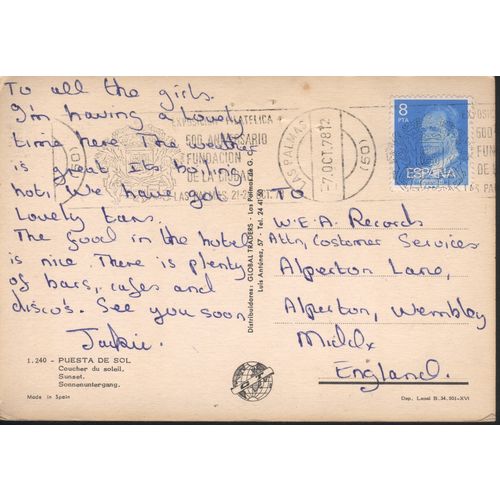 To all the girls.
I'm having a Lovely
time here. The weather
is great its boiling
hot, We have got
Lovely tans.
The food in the hotel
is nice. There is plenty
of bars, cafes and
disco's. See you soon
Jackie.
1.240 - PUESTA DE SOL
Coucher du soleil.
Sunset.
Sonnenuntergang.
Made in Spain
Distribuidores: GLOBAL TRADERS - Las Palmas de G. C.
Luis Antúnez, 57 - Tel. 24 41 50
EXPOSICION FILATELICA
500 ANIVERSARIO
FUNDACION
DE LA CIUDAD
LAS PALMAS
LAS PALMAS
-7.OCT.78 12
(SO)
8
PTA
ESPAÑA
TO
W.E.A. Records
Attn, Costomer Services
Alperton Lane,
Alperton, Wembley
Middx
England.
Dep. Legal B. 34.501-XVI